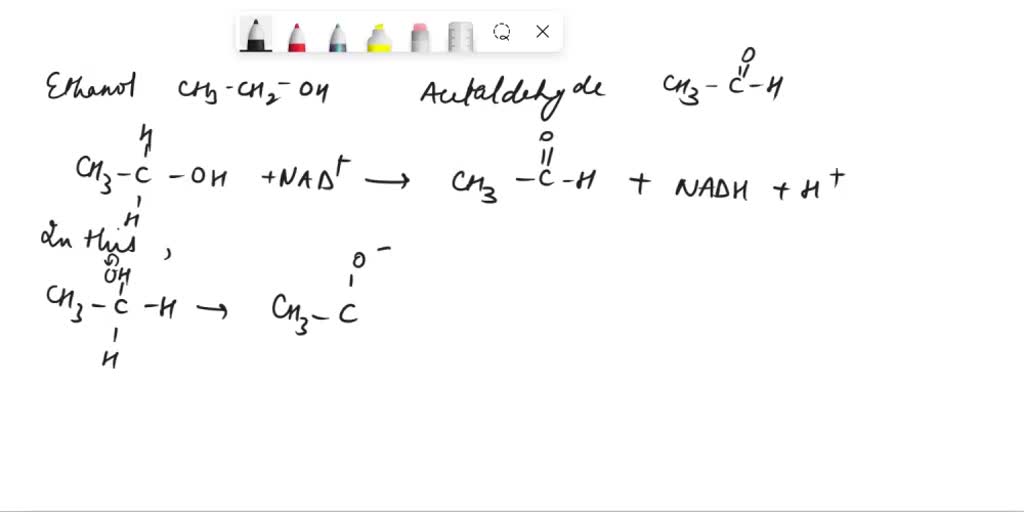 Ethanol CH3-CH2-OH Acetaldehyde CH3-C-H
O
H
O
CH3-C-OH +NAD+ → CH3-C-H + NADH + H+
H
In this,
O-
OH
CH3-C-H → CH3-C
H